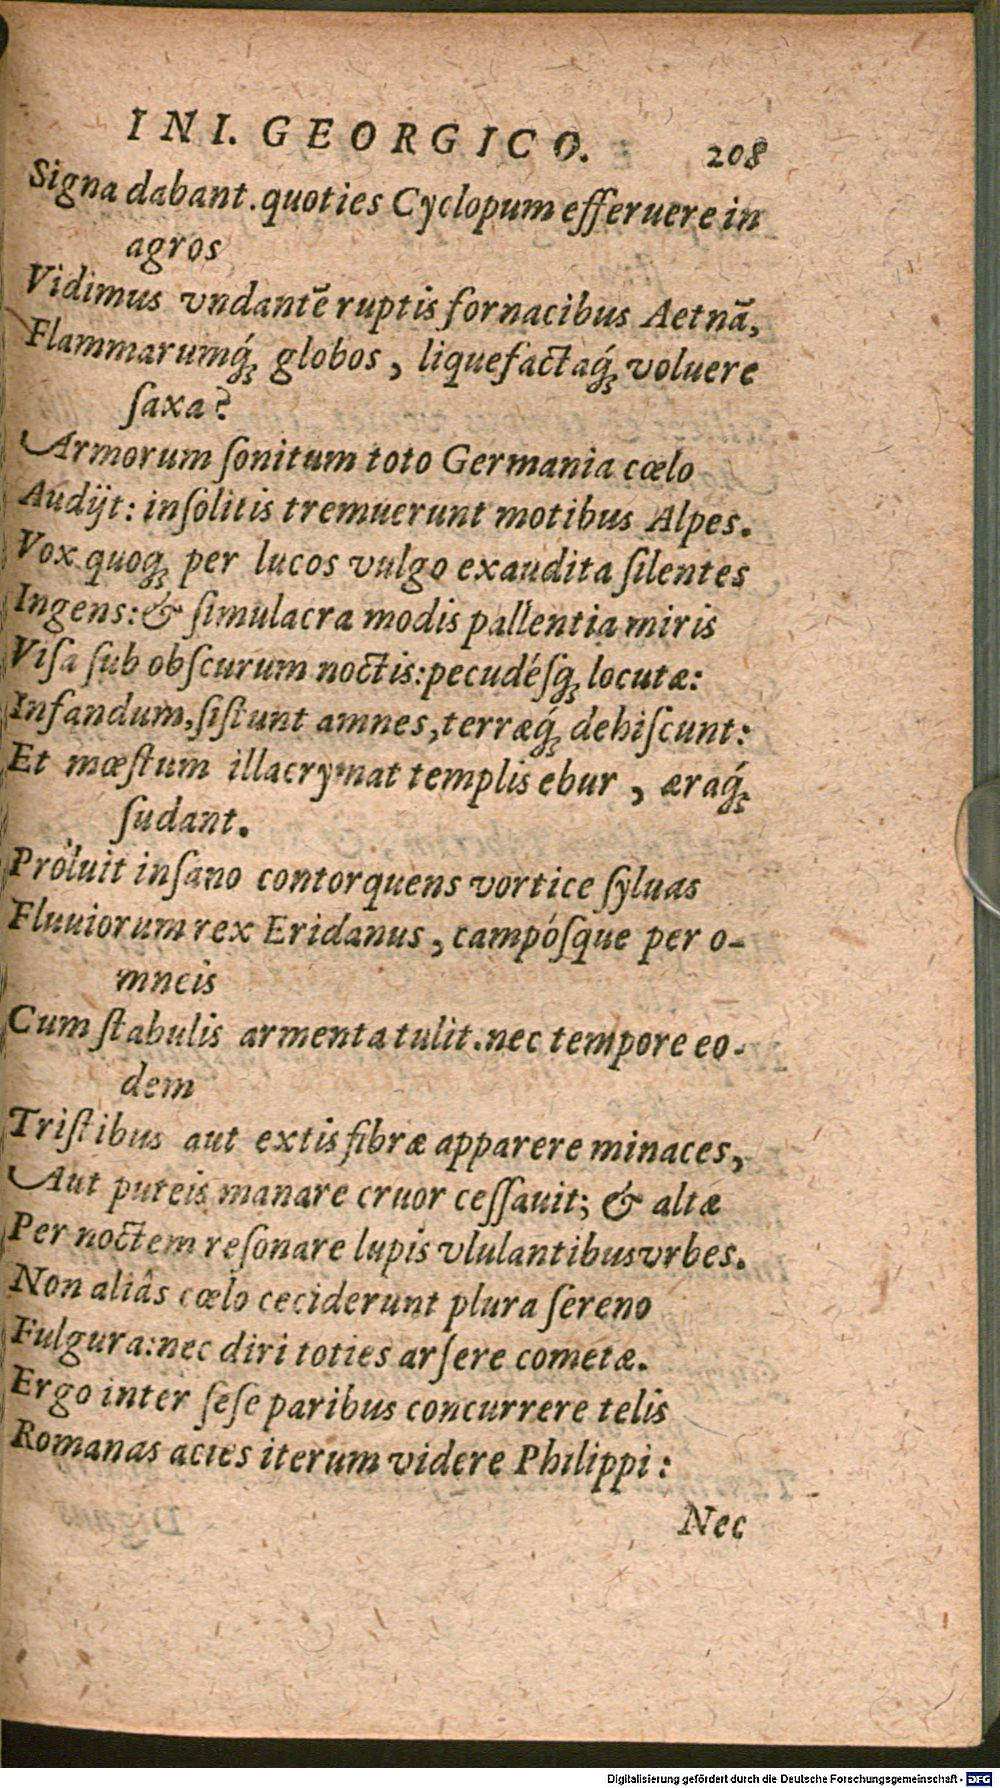 IN I. GEORGICO. 208
Signa dabant. quoties Cyclopum efferuere in
agros
Vidimus vndantē ruptis fornacibus Aetnā,
Flammarumq́; globos, liquefactaq́; voluere
ſaxa?
Armorum ſonitum toto Germania cœlo
Audijt: inſolitis tremuerunt motibus Alpes.
Vox quoq; per lucos vulgo exaudita ſilentes
Ingens: & ſimulacra modis pallentia miris
Viſa ſub obſcurum noctis: pecudéſq; locutæ:
Infandum, ſiſtunt amnes, terræq́; dehiſcunt:
Et mœſtum illacrymat templis ebur, æraq́;
ſudant.
Proluit inſano contorquens vortice ſyluas
Fluuiorum rex Eridanus, campóſque per o-
mneis
Cum ſtabulis armenta tulit. nec tempore eo-
dem
Triſtibus aut extis fibræ apparere minaces,
Aut puteis manare cruor ceſſauit; & altæ
Per noctem reſonare lupis vlulantibus vrbes.
Non aliâs cœlo ceciderunt plura ſereno
Fulgura: nec diri toties arſere cometæ.
Ergo inter ſeſe paribus concurrere telis
Romanas acies iterum videre Philippi:
Nec
Digitalisierung gefördert durch die Deutsche Forschungsgemeinschaft - DFG